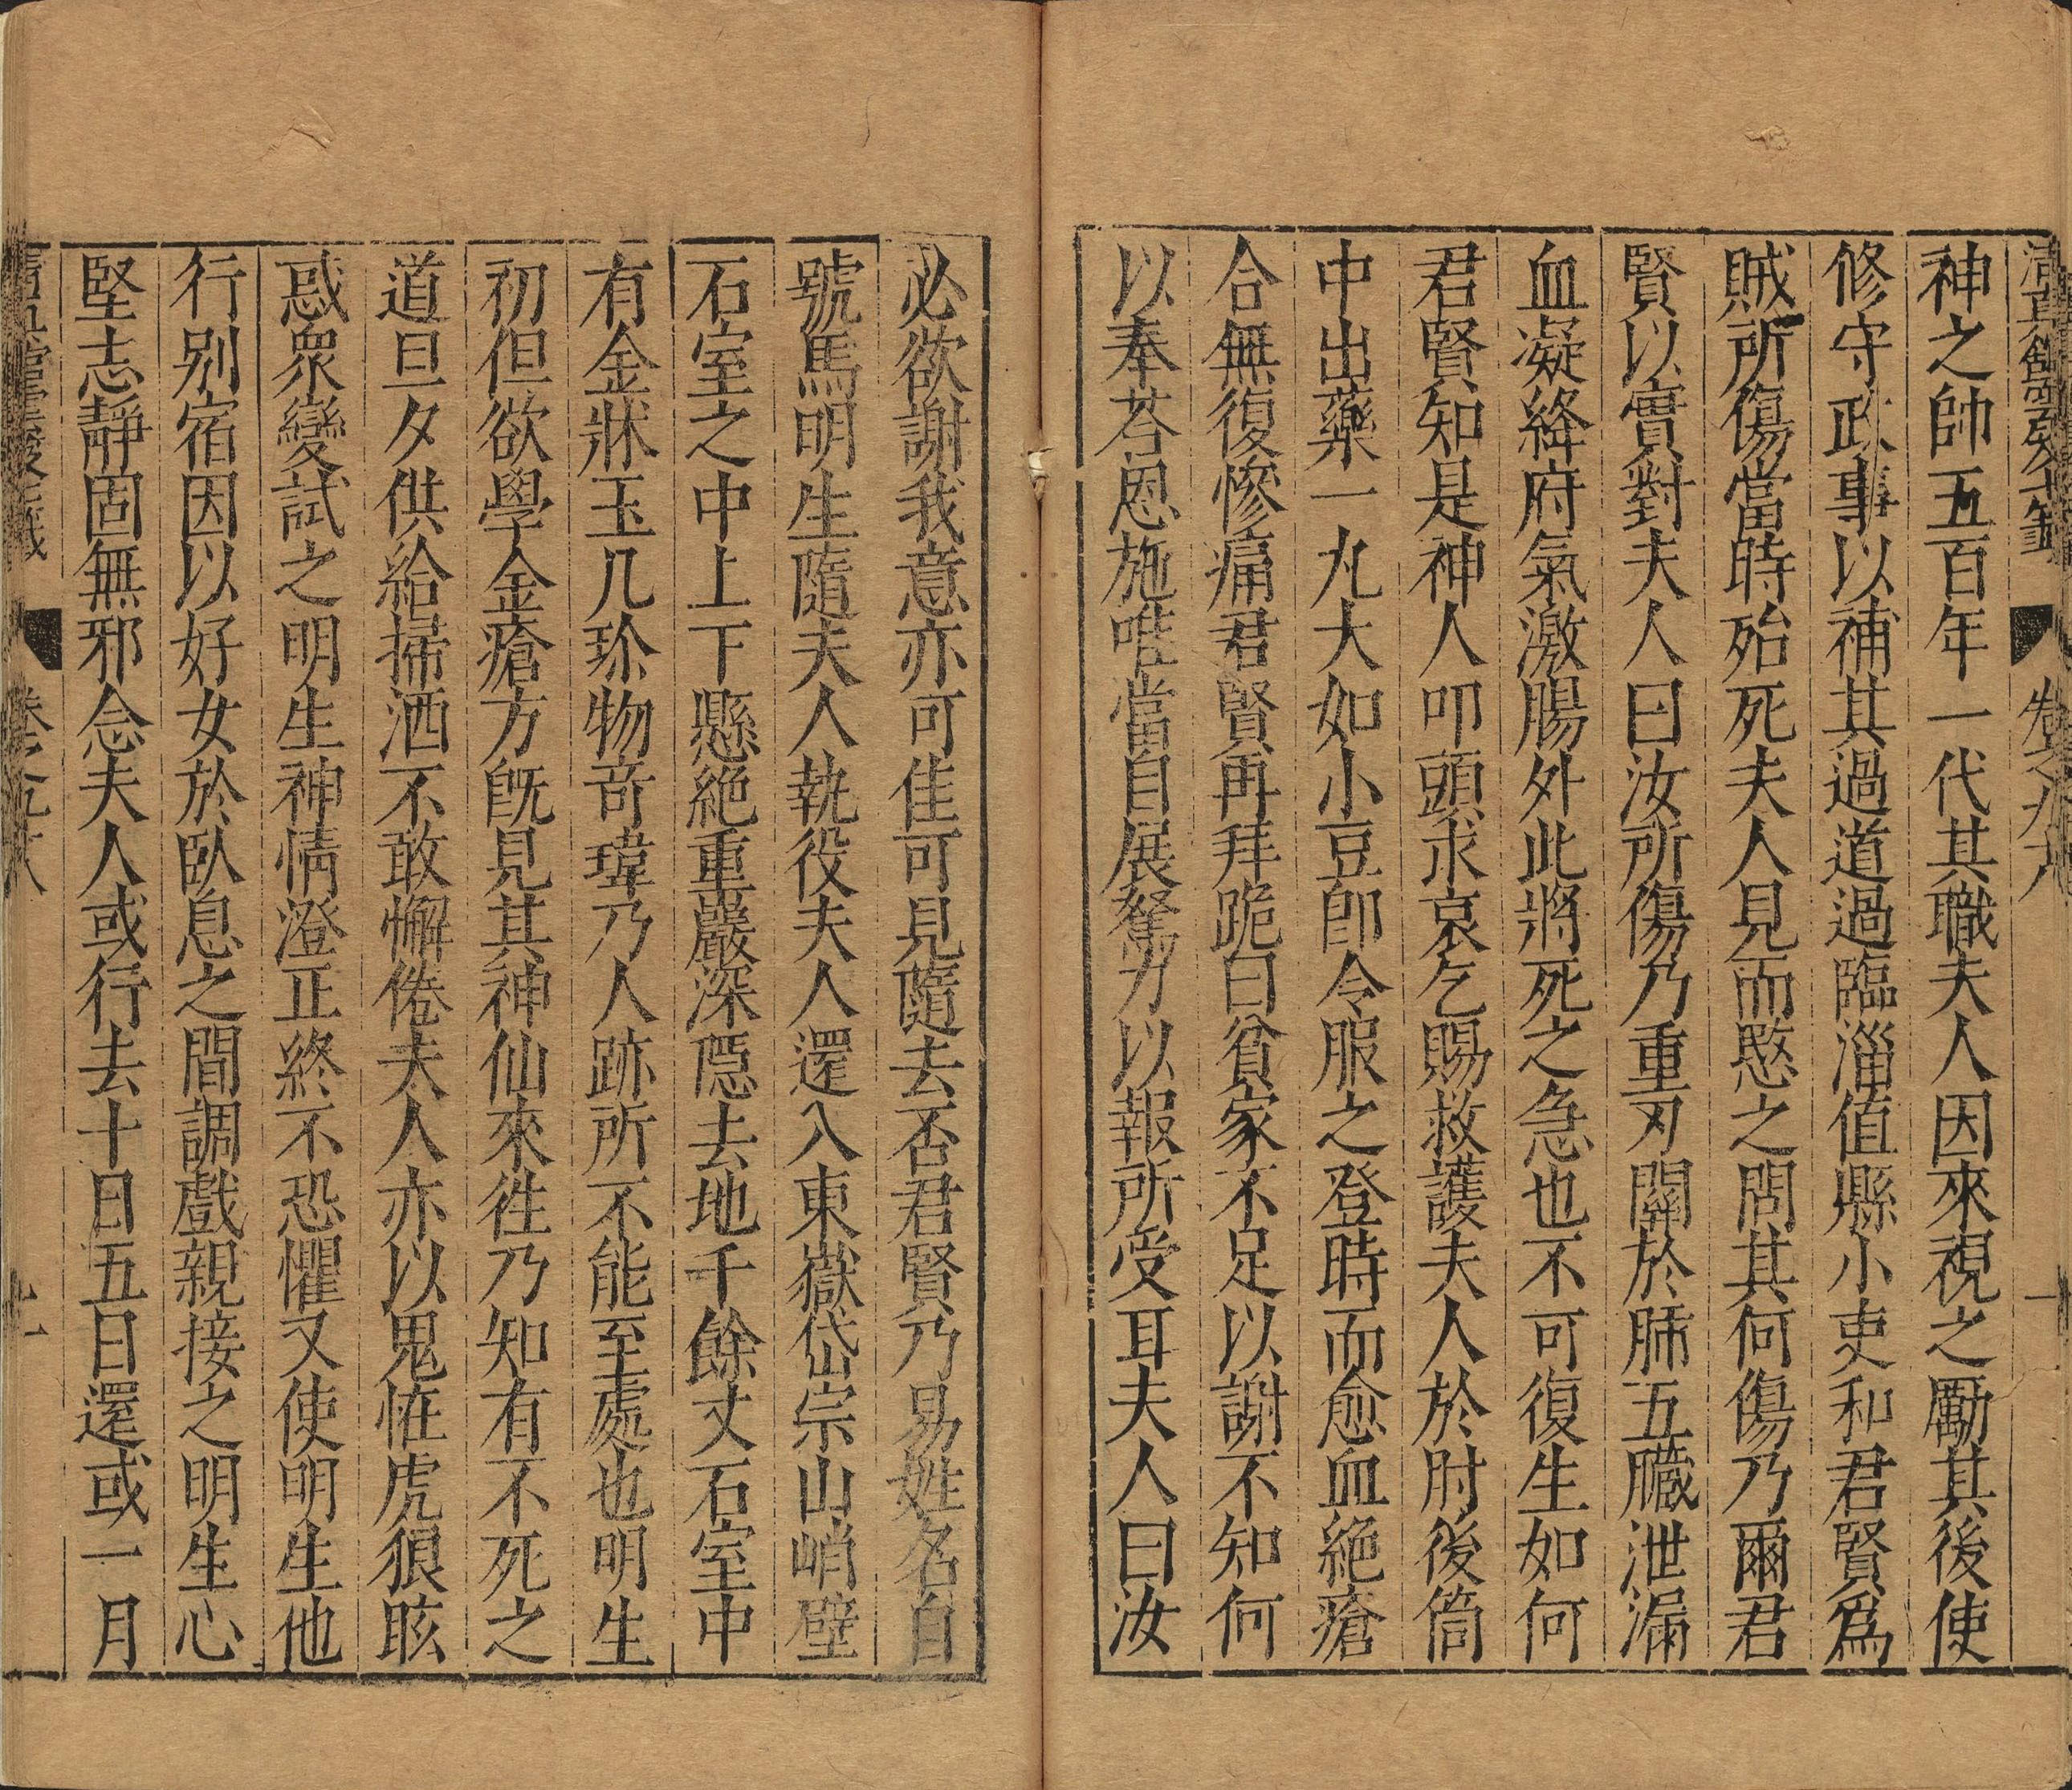 神之帥五百年一代其職夫人因來視之勵其後使
修守政事以補其過道過臨淄值縣小吏和君賢爲
賊所傷當時殆死夫人見而愍之問其何傷乃爾君
賢以實對夫人曰汝所傷乃重刃關於肺五臟泄漏
血凝絳府氣激腸外此將死之急也不可復生如何
君賢知是神人叩頭求哀乞賜救護夫人於肘後筒
中出藥一丸大如小豆卽令服之登時而愈血絶瘡
合無復慘痛君賢再拜跪曰貧家不足以謝不知何
以奉荅恩施唯當自展駑力以報所受耳夫人曰汝
必欲謝我意亦可佳可見隨去否君賢乃易姓名自
號馬明生隨夫人執役夫人還入東嶽岱宗山峭壁
石室之中上下懸絶重巖深隱去地千餘丈石室中
有金牀玉几珎物奇瑋乃人跡所不能至處也明生
初但欲學金瘡方旣見其神仙來徃乃知有不死之
道旦夕供給掃洒不敢懈倦夫人亦以鬼恠虎狼眩
惑衆變試之明生神情澄正終不恐懼又使明生他
行别宿因以好女於臥息之間調戲親接之明生心
堅志靜固無邪念夫人或行去十日五日還或一月